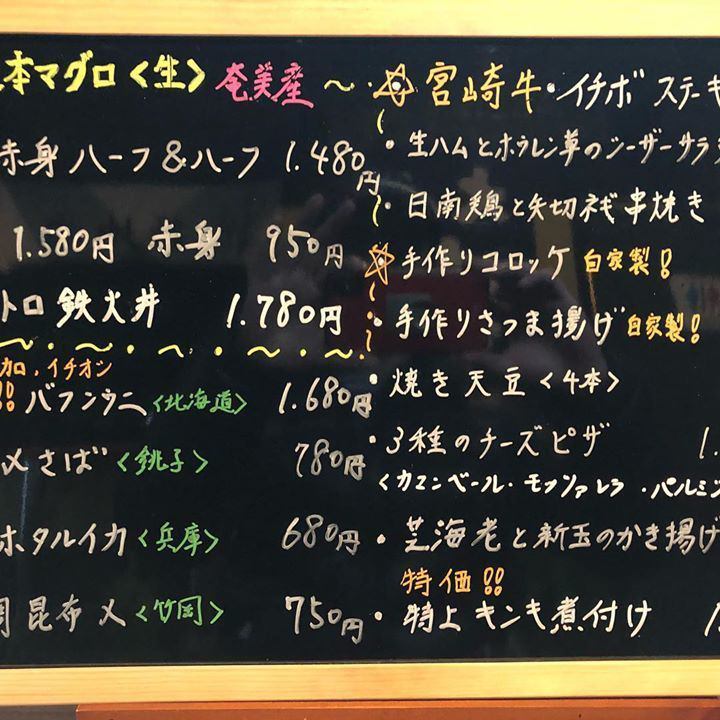 本マグロ〈生〉奄美産
赤身ハーフ&ハーフ 1.480円
1.580円 赤身 950円
トロ鉄火丼 1.780円
加,イチオシ
!!バフンウニ〈北海道〉 1.680円
〆さば〈銚子〉 780円
ホタルイカ〈兵庫〉 680円
昆布〆〈竹岡〉 750円
宮崎牛・イチボステーキ
・生ハムとホウレン草のシーザーサラ
・日南鶏と矢切ネギ串焼き
手作りコロッケ 自家製!
・手作りさつま揚げ 自家製!
・焼き天豆〈4本〉
・3種のチーズピザ 1.
〈カマンベール・モッツァレラ・パルミジ
・芝海老と新玉のかき揚げ
特価!!
・特上キンキ煮付け